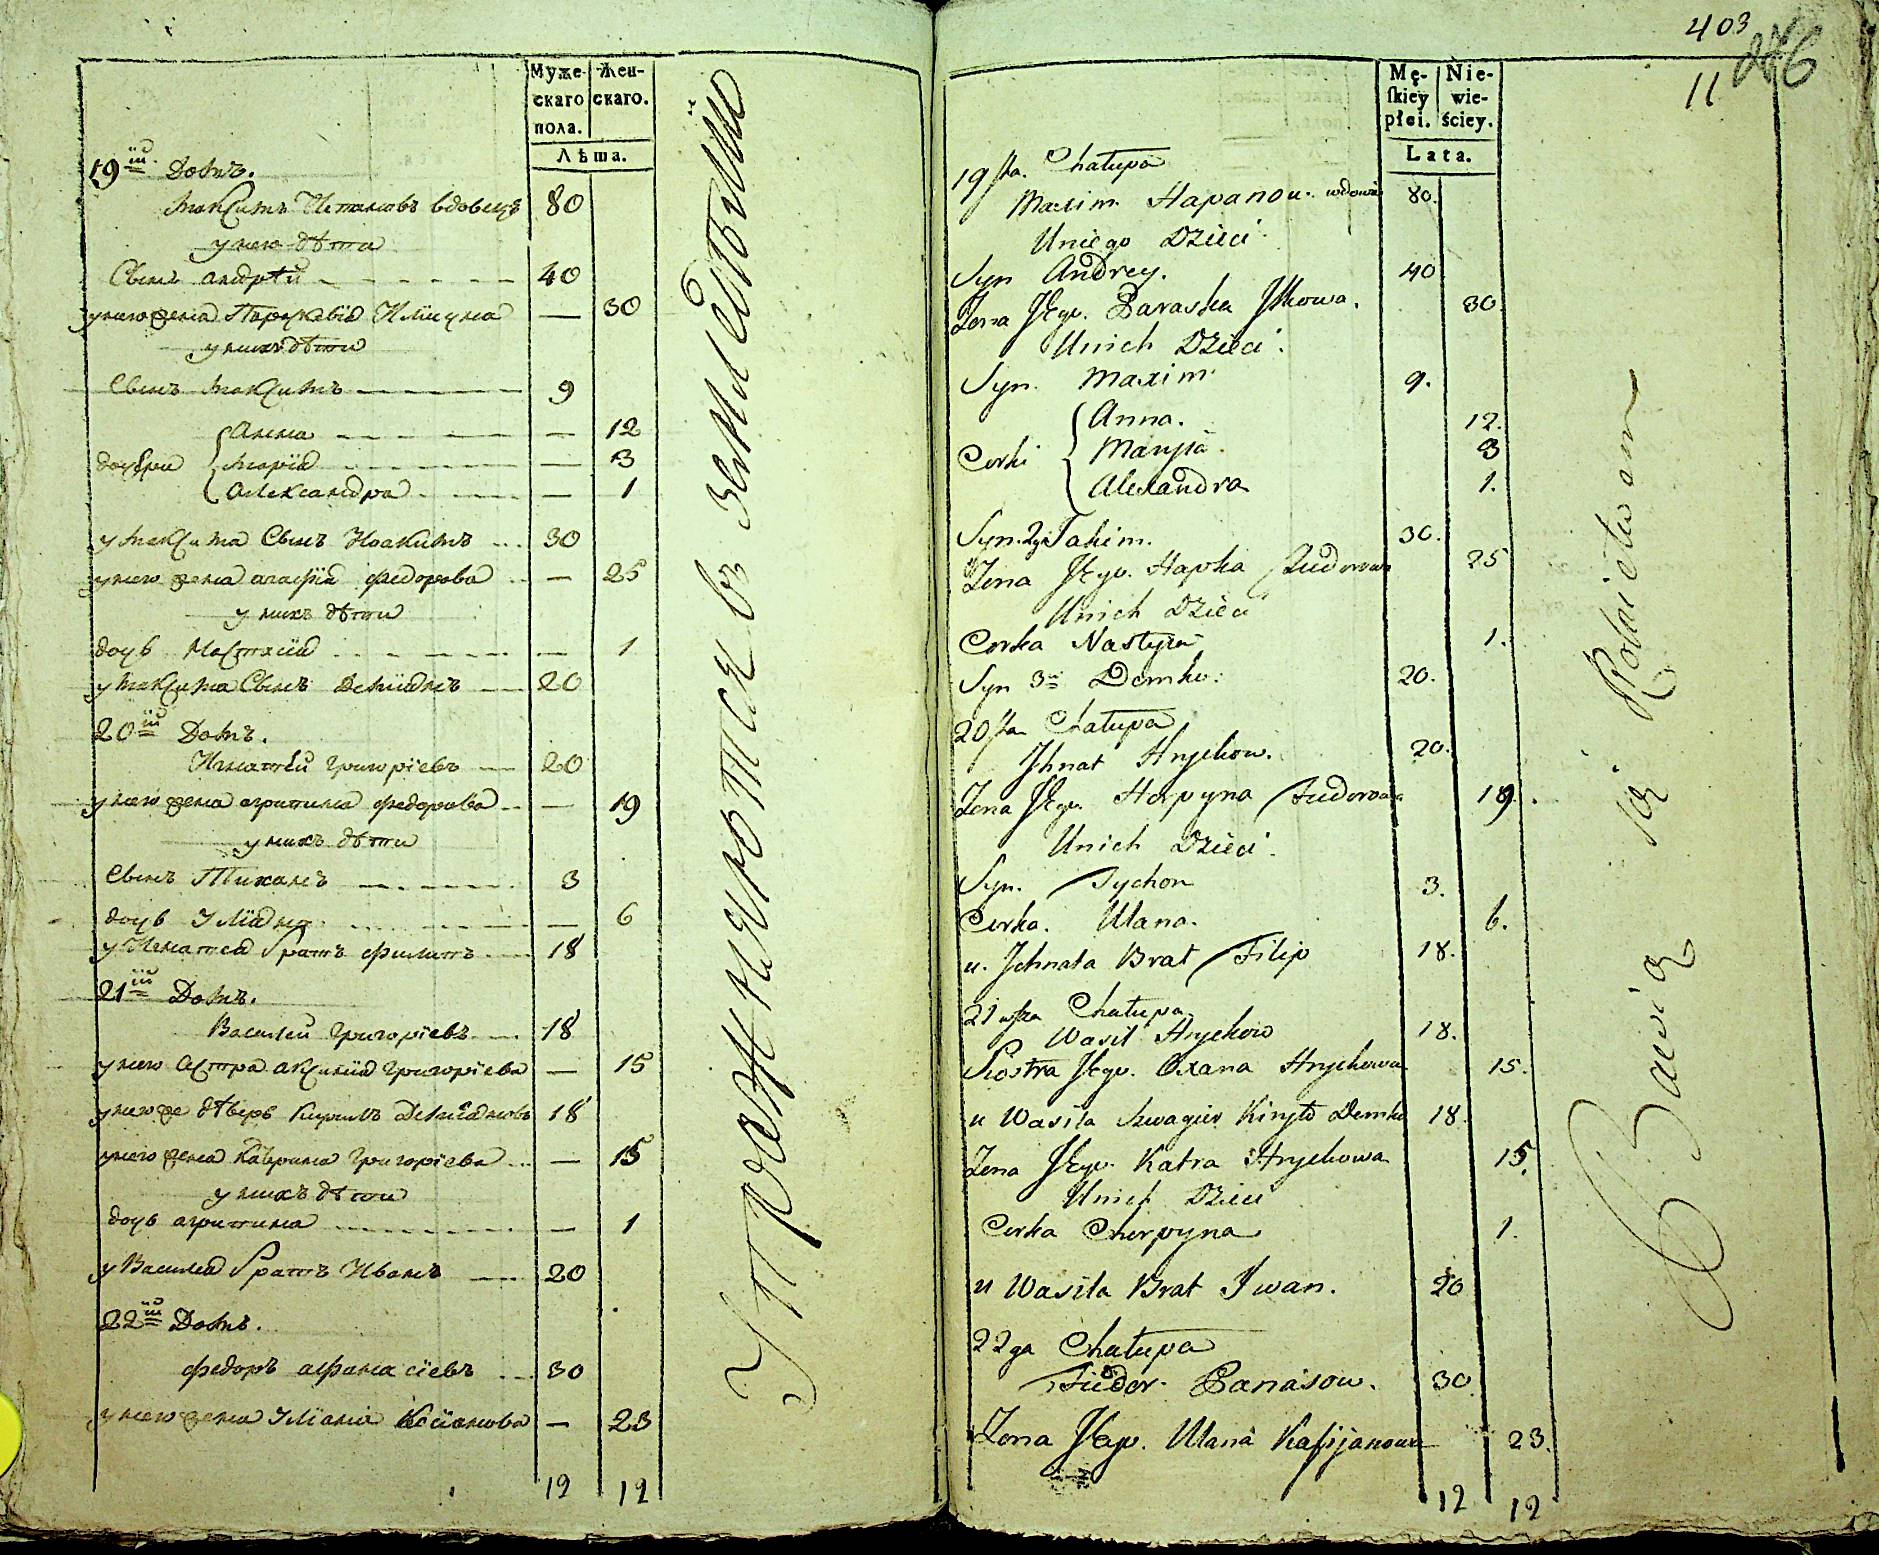 Муже-
скаго
пола.
Жен-
скаго.
Лѣта.
19й Домъ.
Максимъ вдовецъ 80
у него дѣти
Сынъ андрѣй 40
у него жена Параскѣвiя — 30
у нихъ дѣти
Сынъ Максимъ 9
дочери
Анна — 12
Марiя — 3
Александра — 1
у Максима Сынъ Иоакимъ 30
у него жена агафiя федорова — 25
у нихъ дѣти
дочь Настасiя — 1
у Максима Сынъ Демiянъ 20
20й Домъ.
Игнатей григорiевъ 20
у него жена агрипина федорова — 19
у нихъ дѣти
Сынъ Тиханъ 3
дочь Улiяна — 6
у Игнатея братъ филипъ 18
21й Домъ.
Василей григорiевъ 18
у него сестра аксинiя григорiева — 15
у него же дѣверь Кирилъ Демiяновъ 18
у него жена Катерина григорiева — 15
у нихъ дѣти
дочь агрипина — 1
у Василея братъ Иванъ 20
22й Домъ.
федоръ афанасiевъ 30
у него жена Улiяна Касiянова — 23
12 12
Упражняются в землѣдѣлiи
403
11
Mę-
ſkiey
płci.
Nie-
wie-
ściey.
Lata.
19ſta. Chałupa
Maxim Hapanow. wdowiec 80.
Uniego Dzieci
Syn Andrey. 40
Żona Jego. Paraska 30.
Unich Dzieci.
Syn. Maxim 9.
Corki
Anna. 12.
Maryia. 3
Alexandra 1.
Syn. 2gi Jakim. 30.
Żona Jego. Hapka Fiudorowa 25
Unich Dzieci
Corka Nastyia 1.
Syn 3ci Demko. 20.
20ſta Chałupa
Jhnat Hryckow. 20.
Żona Jego Horpyna Fiudorowa 19.
Unich Dzieci.
Syn. Tychon 3.
Corka. Ulana. 6.
u. Jchnata Brat Filip 18.
21wſza Chałupa
Wasil Hryckow 18.
Siostra Jego. Oxana Hryckowa 15.
u Wasila Szwagier Kiryło Demko 18.
Żona Jego. Katra Hryckowa 15.
Unich Dzieci
Corka Chorpyna 1.
u Wasila Brat Iwan. 20
22ga Chałupa
Fiedor. Panasow. 30
Żona Jego. Ulana Kaſijanowa 23.
12 12
Bawią się Rolnictwem